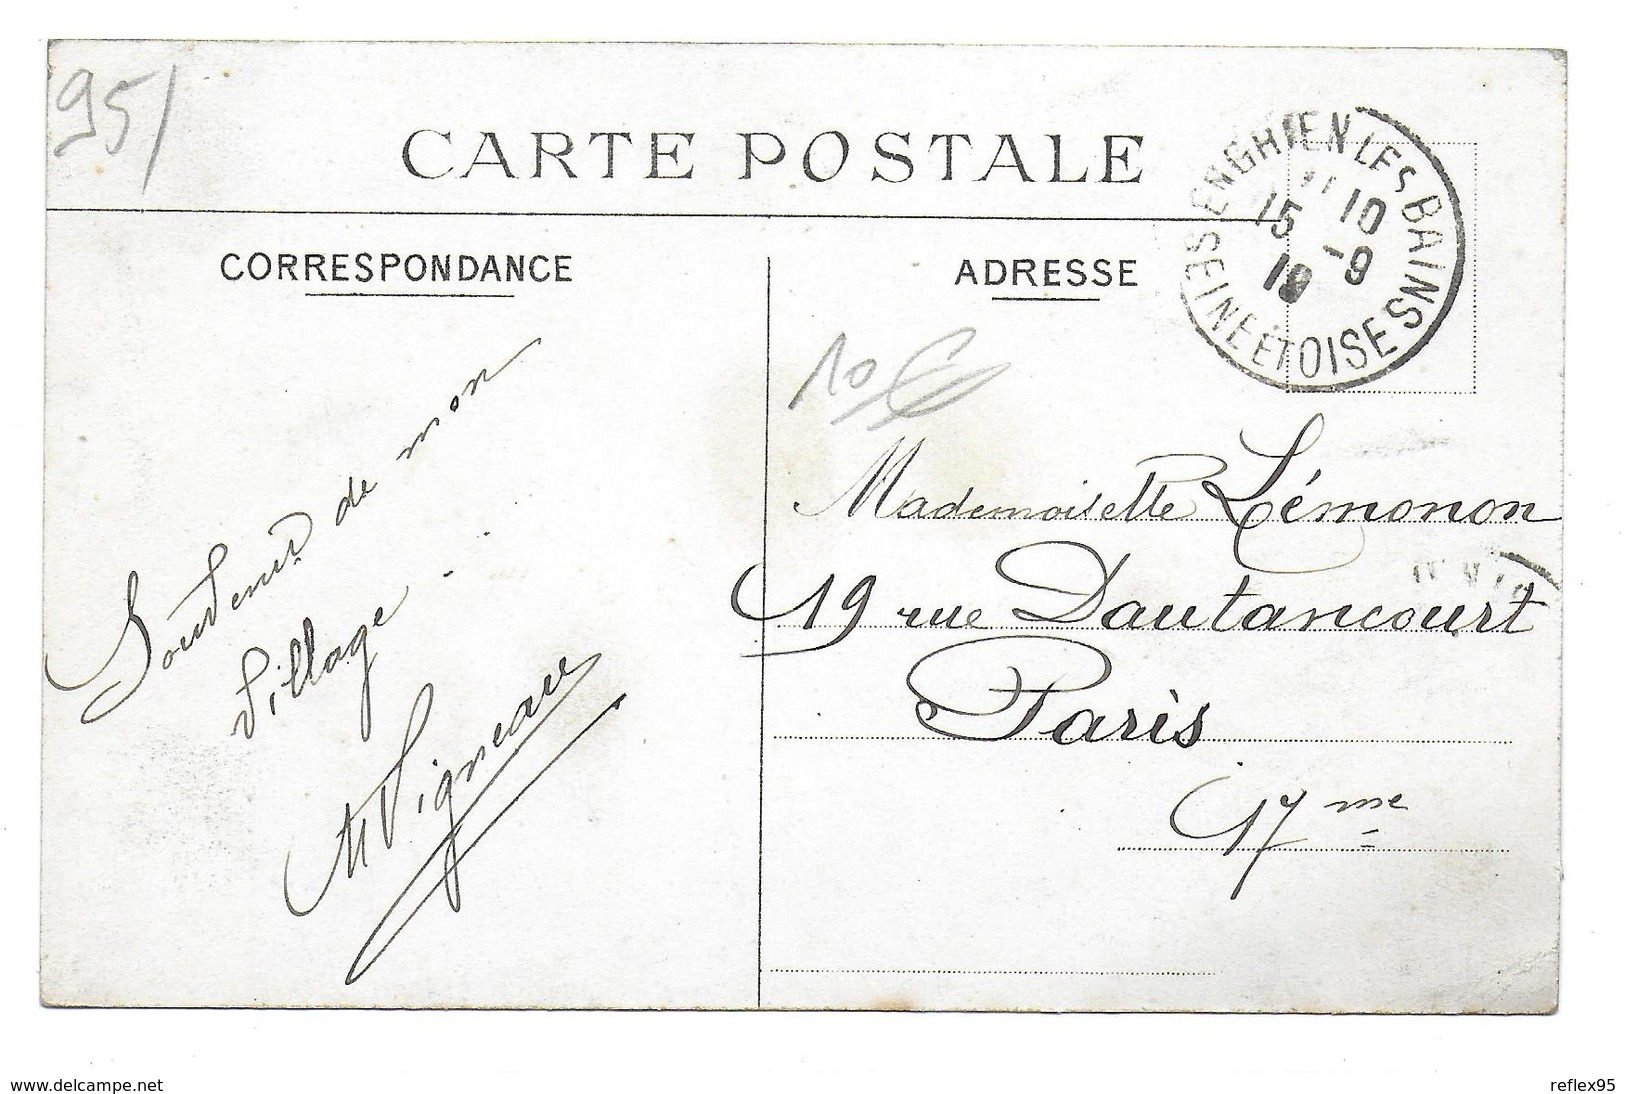 95/
CARTE POSTALE
ENGHIEN LES BAINS
SEINE ET OISE
15 10
-9
CORRESPONDANCE
ADRESSE
10
Souvenir de mon
village
M Vigneau
Mademoiselle Lémonon
19 rue Dautancourt
Paris
17me
www.delcampe.net
reflex95